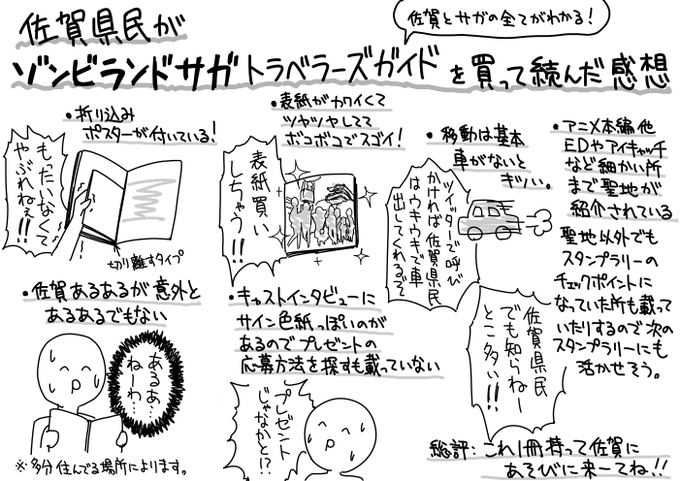 佐賀県民が
佐賀とサガの全てがわかる!
ゾンビランドサガトラベラーズガイドを買って読んだ感想
・折り込み
ポスターが付いている!
もったいなくて
やぶれねぇ!!
切り離すタイプ
・表紙がカワイくて
ツヤツヤしてて
ボコボコでスゴイ!
表紙買い
しちゃう!!
・移動は基本
車がないと
キツい。
ツイッターで呼び
かければ佐賀県民
はウキウキで車
出してくれるで
・アニメ本編他
EDやアイキャッチ
など細かい所
まで聖地が
紹介されている
聖地以外でも
スタンプラリーの
チェックポイントに
なっていた所も載って
いたりするので次の
スタンプラリーにも
活かせそう。
佐賀県民
でも知らねー
とこ多い!!
・佐賀あるあるが意外と
あるあるでもない
あるあ…
ねーわ…
※多分住んでる場所によります。
・キャストインタビューに
サイン色紙っぽいのが
あるのでプレゼントの
応募方法を探すも載っていない
プレゼント
じゃなかと!?
総評:これ1冊持って佐賀に
あそびに来てね!!